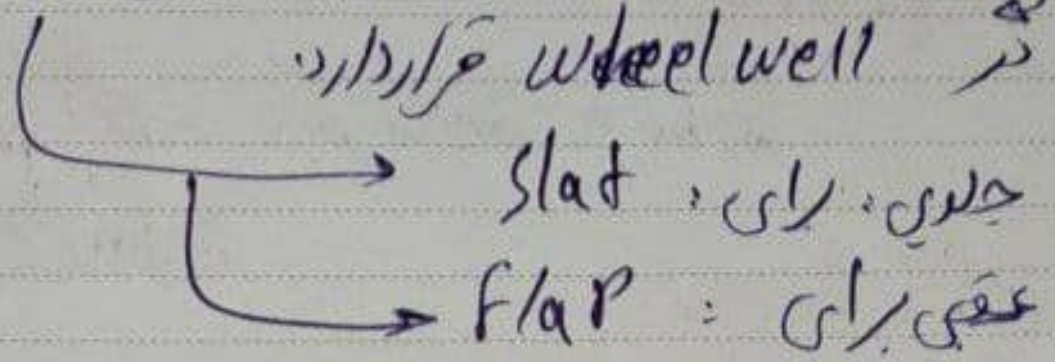 در wheel well قرار دارد.
جلویی برای: Slat
عقبی برای: Flap